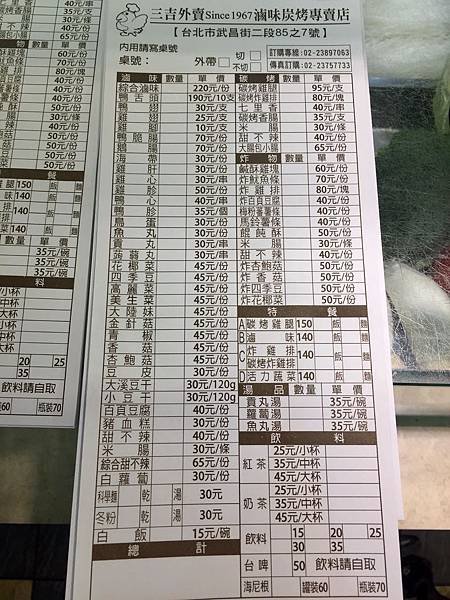 三吉外賣Since1967滷味炭烤專賣店
【台北市武昌街二段85之7號】
內用請寫桌號
桌號: 外帶 切 不切
訂購專線:02-23897063
傳真訂購:02-23757733
滷味 數量 單價
綜合滷味 220元/份
鴨舌頭 190元/10支
鴨翅 30元/支
雞翅 25元/支
雞腳 10元/支
鴨腸 50元/份
鵝腸 70元/份
海帶 30元/份
雞肝 30元/份
雞心 30元/串
雞胗 30元/份
鴨心 40元/串
鴨胗 35元/個
鳥蛋 30元/串
魚丸 30元/串
貢丸 30元/串
蒟蒻丸 30元/串
花椰菜 45元/份
四季豆 45元/份
高麗菜 45元/份
美生菜 45元/份
大陸妹 45元/份
金針菇 45元/份
青椒 45元/份
香菇 45元/份
杏鮑菇 45元/份
豆皮 30元/份
大溪豆干 30元/120g
小豆干 30元/120g
百頁豆腐 40元/份
豬血糕 30元/份
甜不辣 40元/份
米腸 30元/條
綜合甜不辣 65元/份
白蘿蔔 30元/份
科學麵 乾 湯 30元
冬粉 乾 湯 30元
白飯 15元/碗
總計
碳烤 數量 單價
碳烤雞腿 95元/支
碳烤炸雞排 80元/塊
七里香 40元/串
碳烤香腸 35元/支
米腸 30元/條
甜不辣 40元/份
大腸包小腸 65元/份
炸物 數量 單價
鹹酥雞塊 60元/份
炸魷魚條 70元/份
炸雞排 80元/塊
炸百頁豆腐 40元/份
梅粉蕃薯條 40元/份
馬鈴薯條 40元/份
餛飩酥 50元/份
米腸 30元/條
甜不辣 40元/份
炸杏鮑菇 50元/份
炸香菇 50元/份
炸四季豆 50元/份
炸花椰菜 50元/份
特餐
A 碳烤雞腿 150 飯 麵
B 滷味 140 飯 麵
C 炸雞排 碳烤炸雞排 140 飯 麵
D 活力蔬菜 140 飯 麵
湯品 數量 單價
貢丸湯 35元/碗
蘿蔔湯 35元/碗
魚丸湯 35元/碗
飲料
紅茶 25元/小杯
35元/中杯
45元/大杯
奶茶 25元/小杯
35元/中杯
45元/大杯
飲料 15 20 25
30 35
台啤 50 飲料請自取
海尼根 罐裝60 瓶裝70